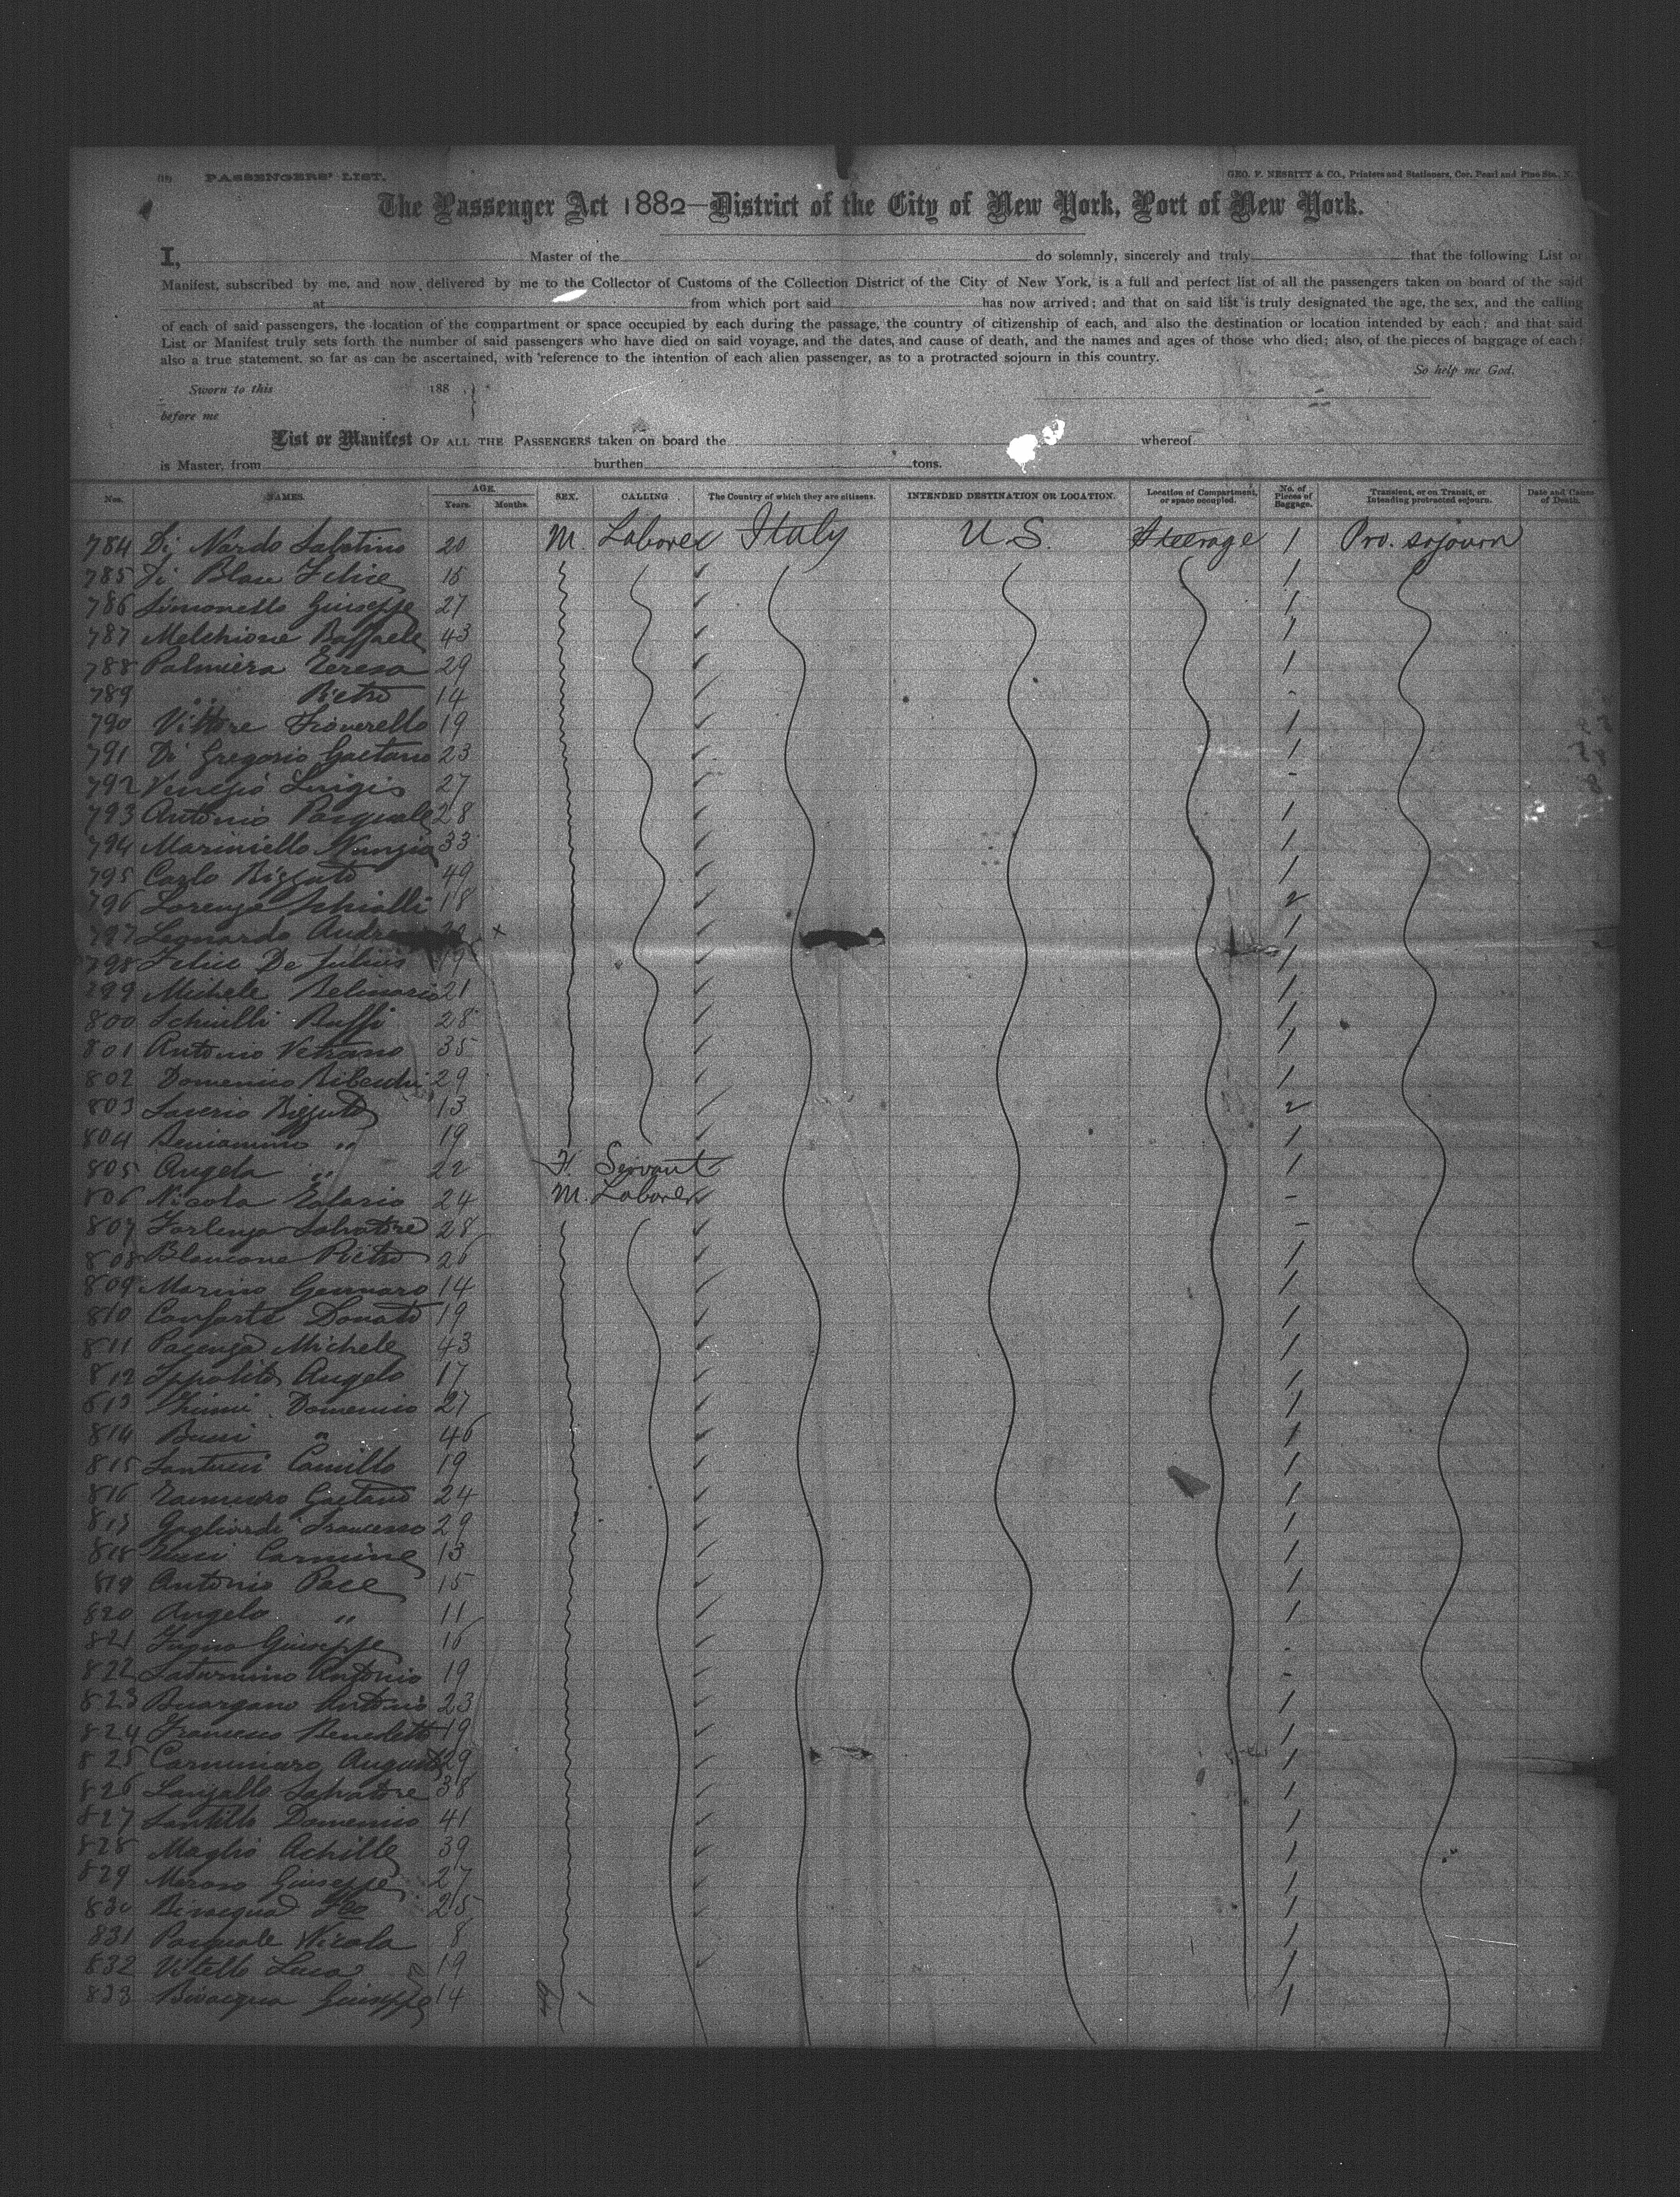 PASSENGERS' LIST.
GEO. F. NESBITT & CO., Printers and Stationers, Cor. Pearl and Pine Sts., N.
The Passenger Act 1882—District of the City of New York, Port of New York.
I, Master of the do solemnly, sincerely and truly that the following List or
Manifest, subscribed by me, and now delivered by me to the Collector of Customs of the Collection District of the City of New York, is a full and perfect list of all the passengers taken on board of the said
at from which port said has now arrived; and that on said list is truly designated the age, the sex, and the calling
of each of said passengers, the location of the compartment or space occupied by each during the passage, the country of citizenship of each, and also the destination or location intended by each; and that said
List or Manifest truly sets forth the number of said passengers who have died on said voyage, and the dates, and cause of death, and the names and ages of those who died; also, of the pieces of baggage of each;
also a true statement, so far as can be ascertained, with reference to the intention of each alien passenger, as to a protracted sojourn in this country.
So help me God.
Sworn to this 188
before me
List or Manifest OF ALL THE PASSENGERS taken on board the whereof
is Master, from burthen tons.
Nos. NAMES. AGE. Years. Months. SEX. CALLING The Country of which they are citizens. INTENDED DESTINATION OR LOCATION. Location of Compartment, or space occupied. No. of Pieces of Baggage. Transient, or on Transit, or Intending protracted sojourn. Date and Cause of Death.
784 Di Nardo Sabatino 20 M. Laborer Italy U S. Steerage 1 Pro. sojourn
785 Di Blau Felice 1
786 Simonetto Giuseppe 27 1
787 Melchione Raffaele 43 1
788 Palmiera Teresa 29 1
789 " Pietro 14 -
790 Vittore 19 1
791 Di Gregorio Gaetano 23 1
792 Luigi 27 -
793 Antonio Pasquale 28 1
794 Mariniello Nunzia 33 1
795 Carlo Bizzuto 49 1
796 Lorenzo Schialli 18 2
797 Leonardo 1
798 Felice De Julius 19 1
799 Michele Belinario 21 1
800 Schiulli Ruffi 28 1
801 Antonio Vetrano 35 1
802 Domenico 29 1
803 Saverio Bizzuto 13 2
804 Beniamino " 19 1
805 Angela " 22 F. Servant 1
806 Nicola 24 M. Laborer -
807 Forlenza Salvatore 28 -
808 Blancone Pietro 26 1
809 Marino Gennaro 14 1
810 Conforte Donato 19 1
811 Pacenza Michele 43 1
812 Ippolito Angelo 17 1
813 Domenico 27 1
814 Bucci " 46 1
815 Santucci Camillo 19 1
816 Gaetano 24 1
817 Gagliardi Francesco 29 1
818 Carmine 13 1
819 Antonio Pace 15 1
820 Angelo " 11 1
821 Giuseppe 16 -
822 Saturnino Antonio 19 -
823 Antonio 23 1
824 Francesco Benedetto 19 1
825 29 1
826 Salvatore 38 1
827 Santillo Domenico 41 1
828 Maglio Achille 39 1
829 Giuseppe 27 1
830 Bivacqua 25 1
831 Pasquale Nicola 8 1
832 Vitello Luca 19 1
833 Bivacqua Giuseppe 14 1